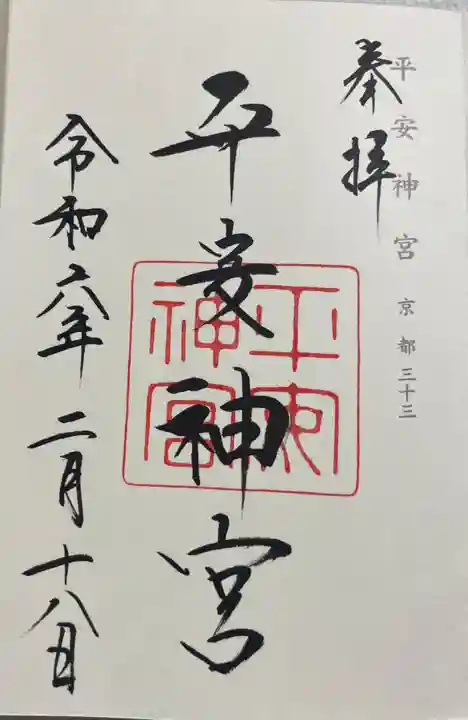 平安神宮 京都 三十三
奉拝
平安神宮
平安神宮
令和六年二月十八日